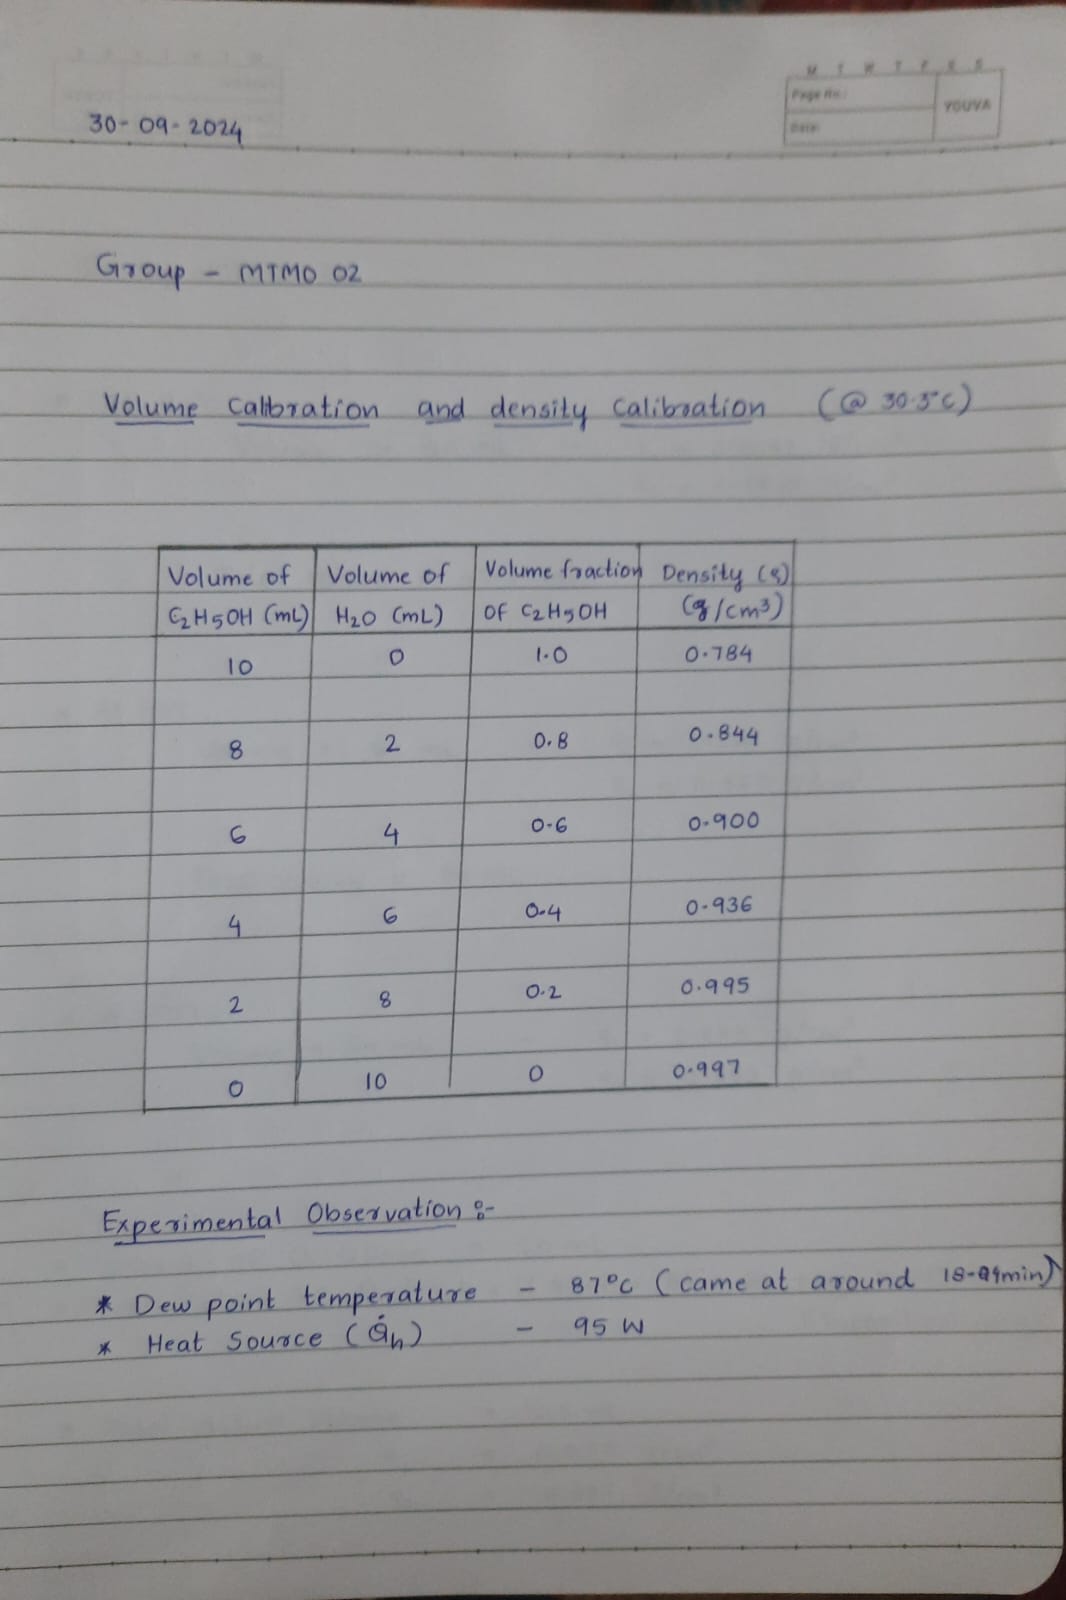 M T W T F S S
Page No.:
YOUVA
Date:
30-09-2024
Group - MTMO 02
Volume Calibration and density Calibration (@ 30.5°C)
Volume of C2H5OH (mL) | Volume of H2O (mL) | Volume fraction of C2H5OH | Density (ρ) (g/cm³)
10 | 0 | 1.0 | 0.784
8 | 2 | 0.8 | 0.844
6 | 4 | 0.6 | 0.900
4 | 6 | 0.4 | 0.936
2 | 8 | 0.2 | 0.995
0 | 10 | 0 | 0.997
Experimental Observation :-
* Dew point temperature - 87°C (came at around min)
* Heat Source (Q̇h) - 95 W